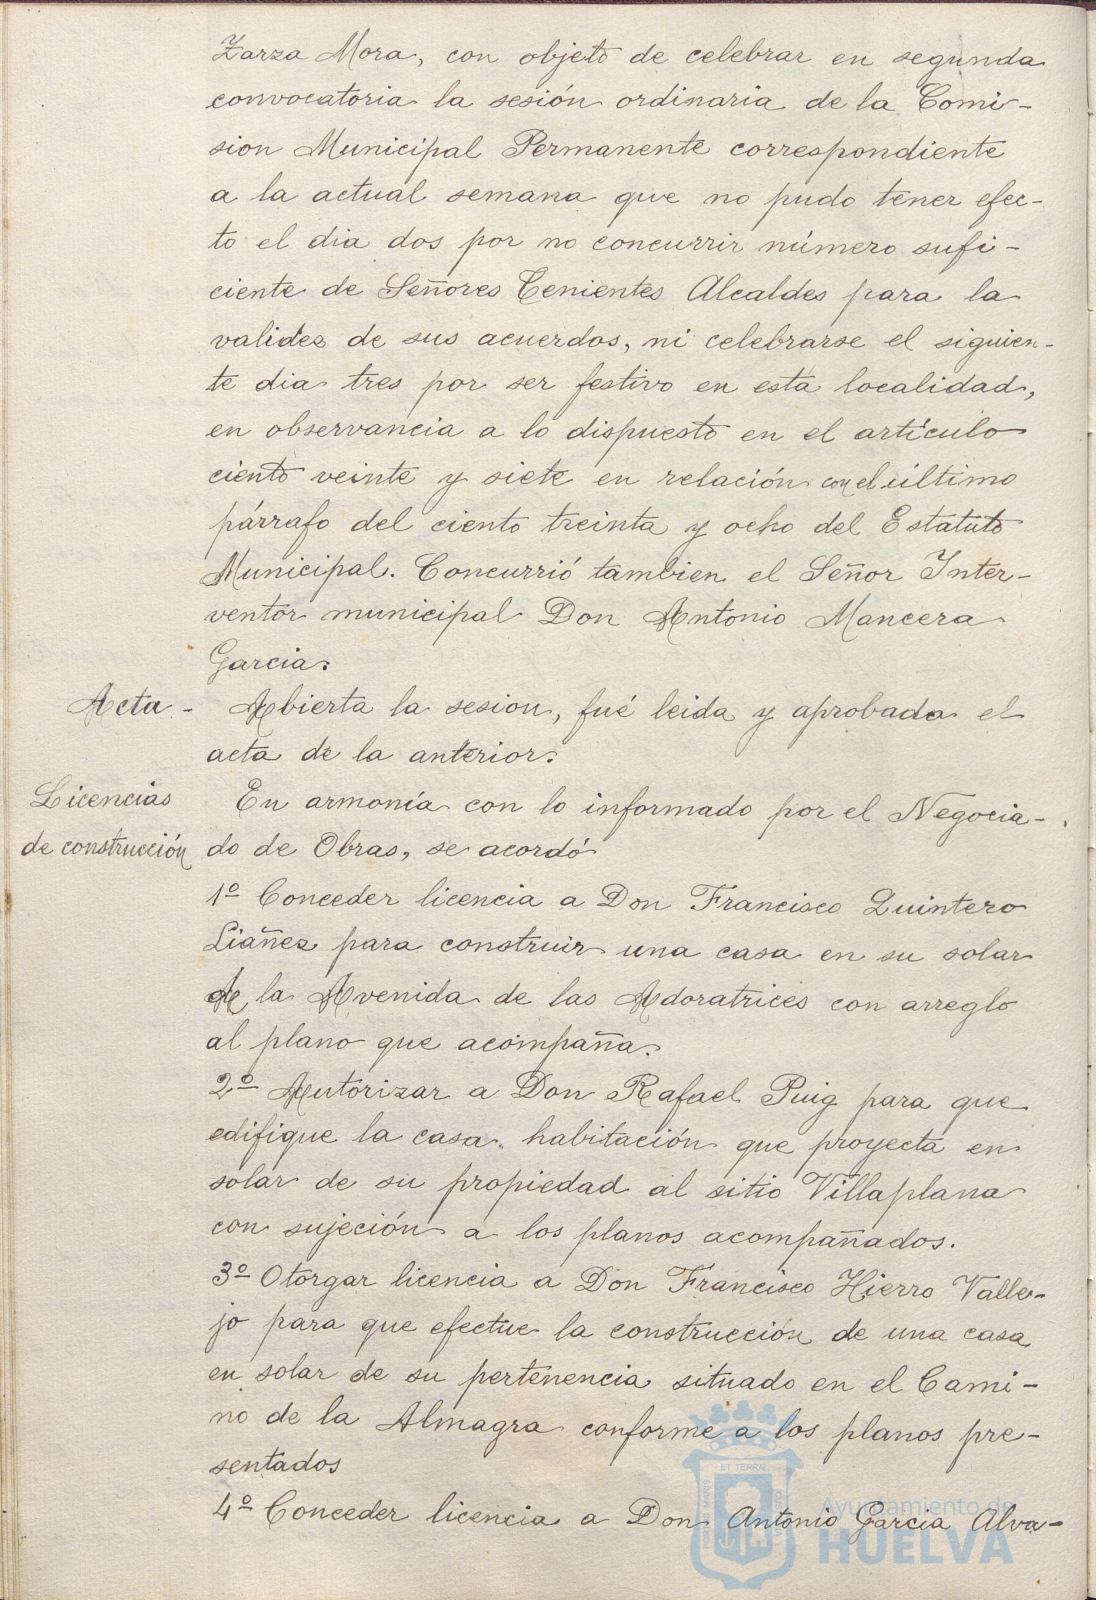 Zarza Mora, con objeto de celebrar en segunda
convocatoria la sesión ordinaria de la Comi-
sion Municipal Permanente correspondiente
a la actual semana que no pudo tener efec-
to el dia dos por no concurrir número sufi-
ciente de Señores Tenientes Alcaldes para la
validez de sus acuerdos, ni celebrarse el siguien-
te dia tres por ser festivo en esta localidad,
en observancia a lo dispuesto en el artículo
ciento veinte y siete en relación con el último
párrafo del ciento treinta y ocho del Estatuto
Municipal. Concurrió tambien el Señor Inter-
ventor municipal Don Antonio Mancera
Garcia.
Acta - Abierta la sesion, fué leida y aprobada el
acta de la anterior.
Licencias En armonía con lo informado por el Negocia-
de construcción do de Obras, se acordó
1º Conceder licencia a Don Francisco Quintero
Liañez para construir una casa en su solar
de la Avenida de las Adoratrices con arreglo
al plano que acompaña.
2º Autorizar a Don Rafael Puig para que
edifique la casa habitación que proyecta en
solar de su propiedad al sitio Villaplana
con sujeción a los planos acompañados.
3º Otorgar licencia a Don Francisco Hierro Valle-
jo para que efectue la construcción de una casa
en solar de su pertenencia situado en el Cami-
no de la Almagra conforme a los planos pre-
sentados
4º Conceder licencia a Don Antonio Garcia Alva-
Ayuntamiento de
HUELVA